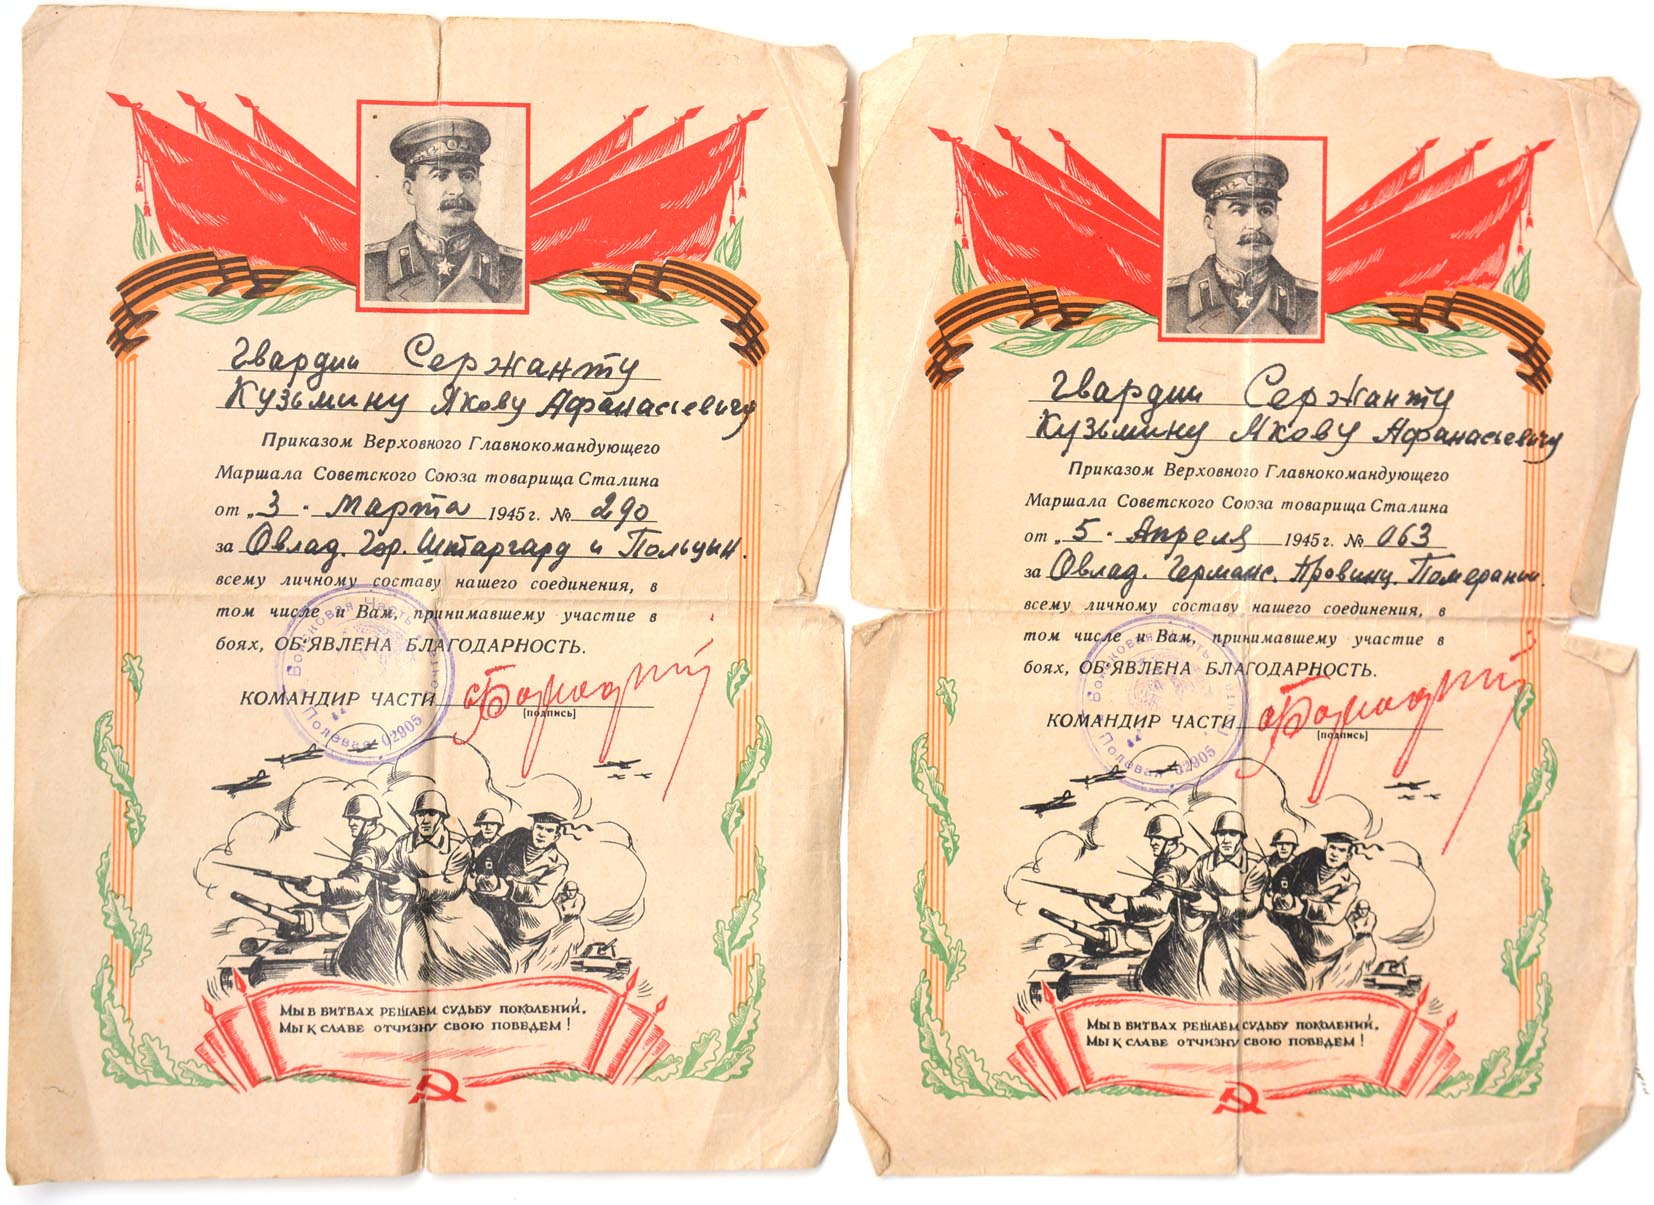 Гвардии Сержанту
Кузьмину Якову Афанасьевичу
Приказом Верховного Главнокомандующего
Маршала Советского Союза товарища Сталина
от „3. Марта 1945 г. № 290
за Овлад. Гор. Штаргард и Польцын.
всему личному составу нашего соединения, в
том числе и Вам, принимавшему участие в
боях, ОБ'ЯВЛЕНА БЛАГОДАРНОСТЬ.
КОМАНДИР ЧАСТИ
[подпись]
Войсковая Часть Полевая 02905
Мы в битвах решаем судьбу поколений,
Мы к славе отчизну свою поведем!
Гвардии Сержанту
Кузьмину Якову Афанасьевичу
Приказом Верховного Главнокомандующего
Маршала Советского Союза товарища Сталина
от „5. Апреля 1945 г. № 063
за Овлад. Германс. Провинц. Померании.
всему личному составу нашего соединения, в
том числе и Вам, принимавшему участие в
боях, ОБ'ЯВЛЕНА БЛАГОДАРНОСТЬ.
КОМАНДИР ЧАСТИ
[подпись]
Войсковая Часть Полевая 02905
Мы в битвах решаем судьбу поколений,
Мы к славе отчизну свою поведем!